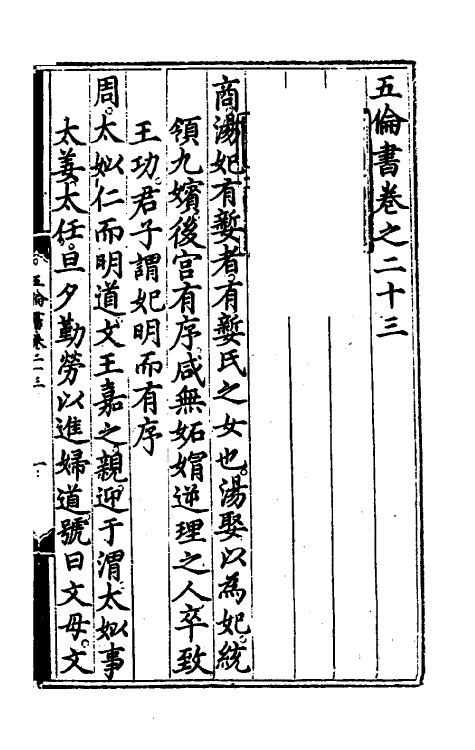 五倫書卷之二十三
商湯妃有㜪者有㜪氏之女也湯娶以為妃統
領九嬪後宮有序咸無妬媢逆理之人卒致
王功君子謂妃明而有序
周太姒仁而明道文王嘉之親迎于渭太姒事
太姜太任旦夕勤勞以進婦道號曰文母文
五倫書卷二十三
一